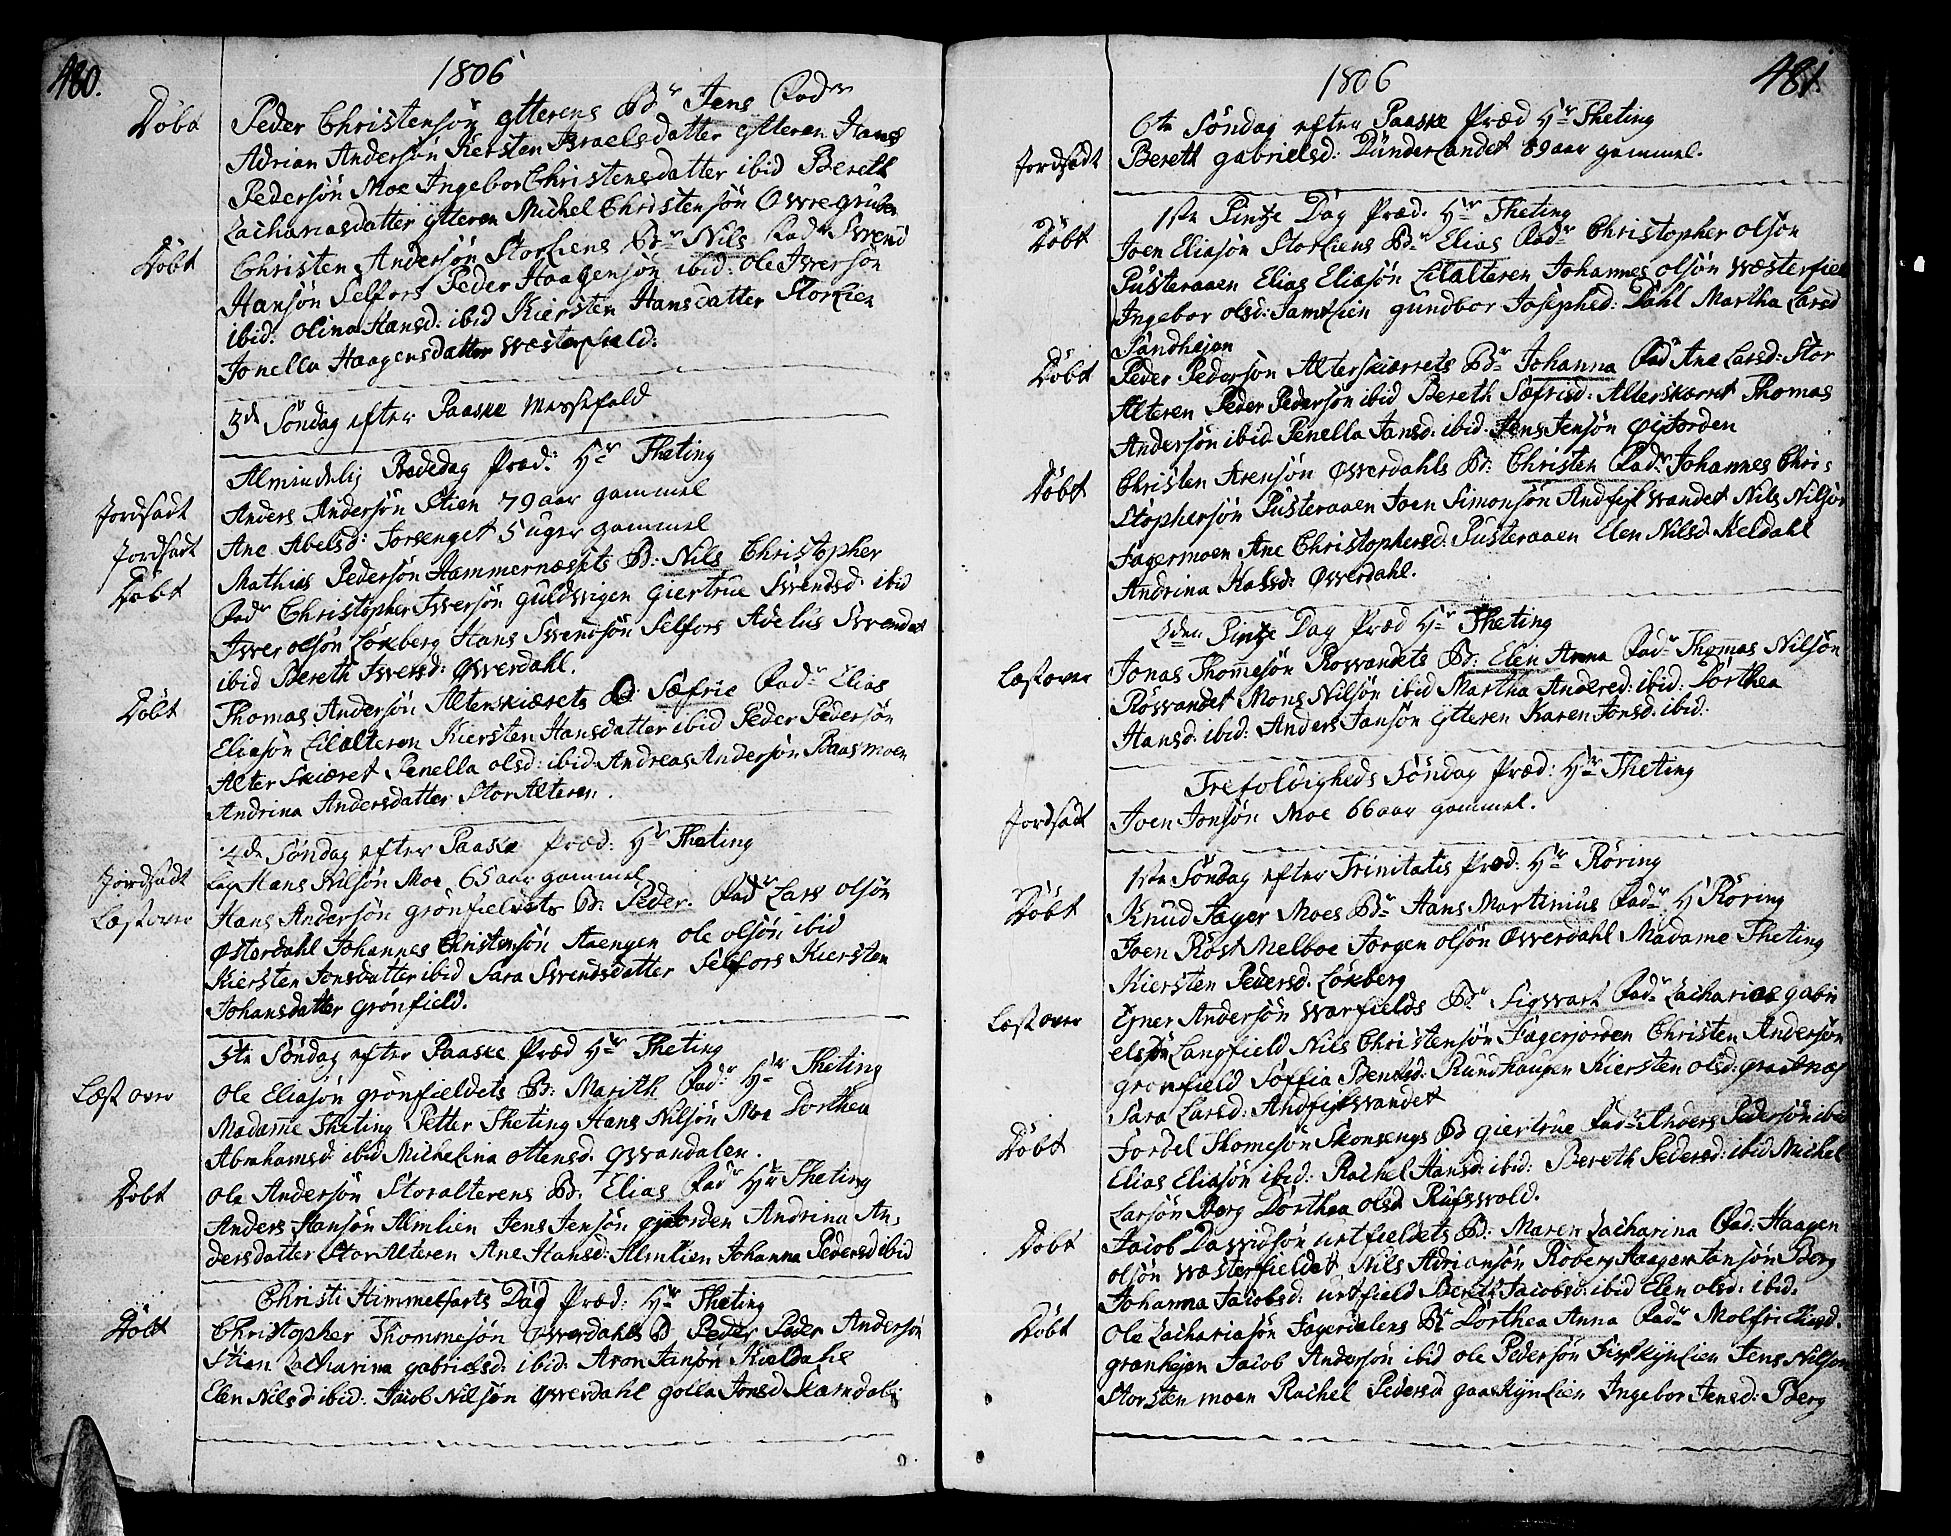 480.
1806
Döbt Peder Christensön ytterens Br Jens Fadr
Adrian Andersön Kiersten Israelsdatter ytteren Hans
Pedersön Moe Ingebor Christensdatter ibid Bereth
Zachariasdatter ytteren Michel Christensön Owregruben
Döbt Christen Andersön Storliens Br Nils Fadr Svend
Hansön Selfors Peder Haagensön ibid: Ole Iwersön
ibid: Olina Hansd: ibid Kiersten Hansdatter Storlien
Jonella Haagensdatter Westerfield.
3de Söndag efter Paaske Messefald
Almindelig Bededag Præd: Hr Theting
Jordfædt Anders Andersön Stien 79 aar gammel
Jordfæst Ane Abelsd: Forsenget 5 uger gammel
Döbt Mathias Pedersön Hammernæssets B: Nils Christopher
Fadr Christopher Iwersön Guldwigen Giertrue Svendsd: ibid
Iwer olsön Löxberg Hans Svendsön Selfors Adelus Svendsd
ibid Bereth Iwersd: Owerdahl.
Döbt Thomas Andersön Alterskiærets B: Sæfrie Fadr Elias
Eliasön Lilalteren Kiersten Hansdatter ibid Peder Pedersön
Alter Skiæret Penella olsd: ibid Andreas Andersön Baasmoen
Andrina Andersdatter StorAlteren.
4de Söndag efter Paaske Præd: Hr Theting
Jordfædt Hans Nilsön Moe 65 aar gammel
Læst over Hans Andersön grönfieldets B: Peder: Fadr Lars olsön
Østerdahl Johannes Christensön Aaengen ole olsön ibid
Kiersten Jensdatter ibid Sara Svendsdatter Selfors Kiersten
Johansdatter Grönfield.
5te Söndag efter Paaske Præd Hr Theting
Læst over Ole Eliasön grönfieldets B: Marith Fadr Hr Theting
Madame Theting Petter Theting Hans Nilsön Moe Dorthea
Abrahamsd ibid Michelina Ottensd. Qwandalen.
Döbt Ole Andersön Storalterens B: Elias Fadr Hr Theting
Anders Hansön Almlien Jens Jensön Øijorden Andrina An,
dersdatter StorAlteren Ane Hansd: Almlien Johanna Pedersd ibid
Christi Himmelfarts Dag Præd: Hr Theting
Döbt Christopher Thommesön Owerdahls B Peder Peder Andersön
Stien Zacharina gabrielsd: ibid: Aron Jansön Kieldahl
Elen Nilsd ibid. Jacob Nilsön Owerdahl golla Jonsd Skamdal:
481.
1806
6te Söndag efter Paaske Præd Hr Theting
Jordfædt Bereth gabrielsd: Dunderlandet 89 aar gammel.
1ste Pintze Dag Præd. Hr Theting
Döbt Joen Eliasön Storliens Br Elias Fadr Christopher olsön
Pusteraaen Elias Eliasön Lilalteren Johannes olsön Westerfield
Ingebor olsd: Jamtlien gundbor Josephsd: Dahl Martha Larsd
Sandhejen
Döbt Peder Pedersön Alterskiærrets Br Johanna Fadr Ane Larsd: Stor
Alteren Peder Pedersön ibid Bereth Sæfrisd: Alterskæret Thomas
Andersön ibid Penella Jansd: ibid: Jens Jensön Øijorden
Döbt Christen Arensön Owerdahls B: Christen Fadr Johannes Chri:
Stophersön Pusteraaen Joen Simonsön Andfiskwandet Nils Nilsön
Fagermoen Ane Christophersd: Pusteraaen Elen Nilsd Keldahl
Andrina Halsd: Owerdahl.
2den Pintze Dag Præd Hr Theting
Læst over Jonas Thommesön Röswandets B: Elen Anna Fadr Thomas Nilsön
Röswandet Mons Nilsön ibid Martha Andersd: ibid: Dorthea
Hansd: ibid: Anders Jansön ytteren Karen Jonsd. ibid:
Trefoldigheds Söndag Præd: Hr Theting
Jordfædt Joen Jonsön Moe 66 aar gammel.
1ste Söndag efter Trinitatis Præd: Hr Röring
Döbt Knud Fager Moes Br Hans Martinius Fadr Hr Röring
Joen Röst Melboe Jörgen olsön Owerdahl Madame Theting
Kiersten Pedersd. Löxberg
Læst over Ejner Andersön Warfields Br Sigwart Fadr Zacharias gabri
elsön Langfield Nils Christensön Fagerjorden Christen Andersön
gronfield Soffia Bentsd: Rundhaugen Kiersten olsd: graatnæs
Sara Larsd: Andfiskwandet
Döbt Fordel Thomesön Skonsengs B Giertrue Fadr Anders Pedersön ibid
Elias Eliasön ibid: Rachel Hansd: ibid: Bereth Pedersd: ibid Michel
Larsön Berg Dorthea olsd Rufswold.
Döbt Jacob Dawidsön urtfieldets B: Maren Zacharina Fad: Haagen
olsön Westerfieldet Nils Adriansön Roberg Haagen Jansön Berg
Johanna Jacobsd: urtfield Bereth Jacobsd: ibid Elen olsd: ibid.
Döbt Ole Zachariasön Fagerdalens B: Dorthea Anna Fadr Molfrid
granhejen Jacob Andersön ibid ole Pedersön Jens Nilsön
Storsten moen Rachel Pedersd gaaskynlien Ingebor Jensd: Berg